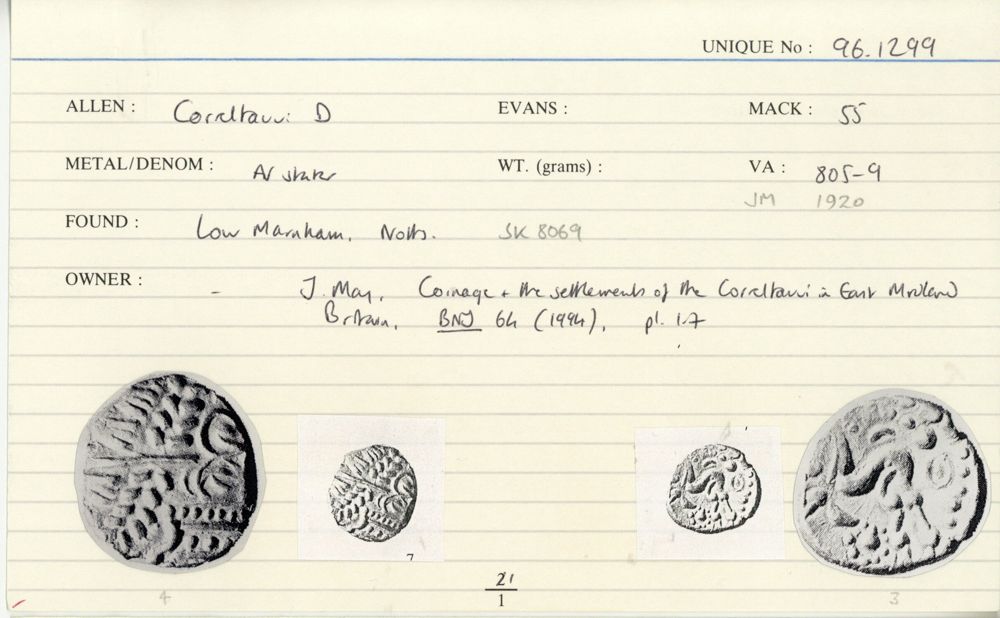 UNIQUE No : 96.1299
ALLEN : Correltauvi D EVANS : MACK : 55
METAL/DENOM : AV stater WT. (grams) : VA : 805-9
JM 1920
FOUND : Low Marnham, Notts. SK 8069
OWNER : - J. May, Coinage + the settlements of the Correltauvi in East Midland
Britain, BNJ 64 (1994), pl. 1.7
7
21
1
4 3